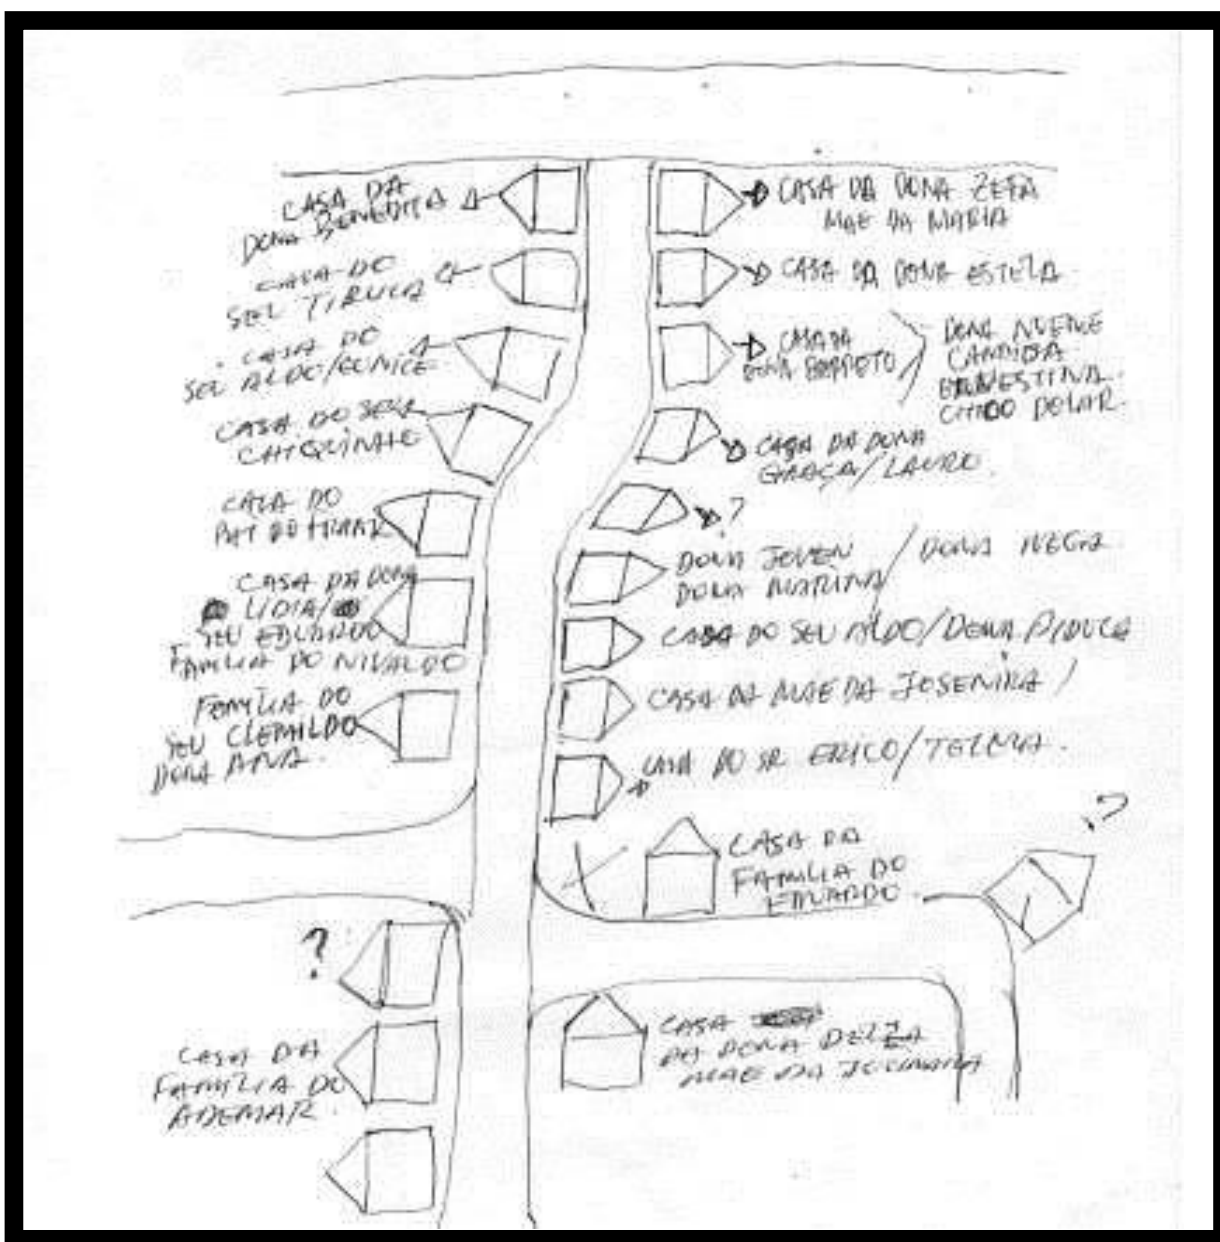 CASA DA
DONA BENEDITA
CASA DO
SEU TIBUCA
CASA DO
SEU ALDO/EUNICE
CASA DO SEU
CHIQUINHO
CASA DO
PAI DO
CASA DA DONA
LIDIA/
SEU EDUARDO
FAMILIA DO NIVALDO
FAMÍLIA DO
SEU CLEMILDO
DONA ANA.
?
CASA DA
FAMÍLIA DO
ADEMAR.
CASA DA DONA ZEFA
MAE DA MARIA
CASA DA DONA ESTELA
CASA DA
DONA BARRETO
DONA
CANDIDA
ERNESTINA.
CHICO
CASA DA DONA
GRAÇA/LAURO.
?
DONA JOVEN / DONA NEGA
DONA MARINA
CASA DO SEU ALDO/DONA
CASA DA MAE DA JOSENIRA /
CASA DO SR ERICO/TELMA.
CASA DA
FAMILIA DO
EDUARDO.
?
CASA
DA DONA DELZA
MAE DA JUCIMARA